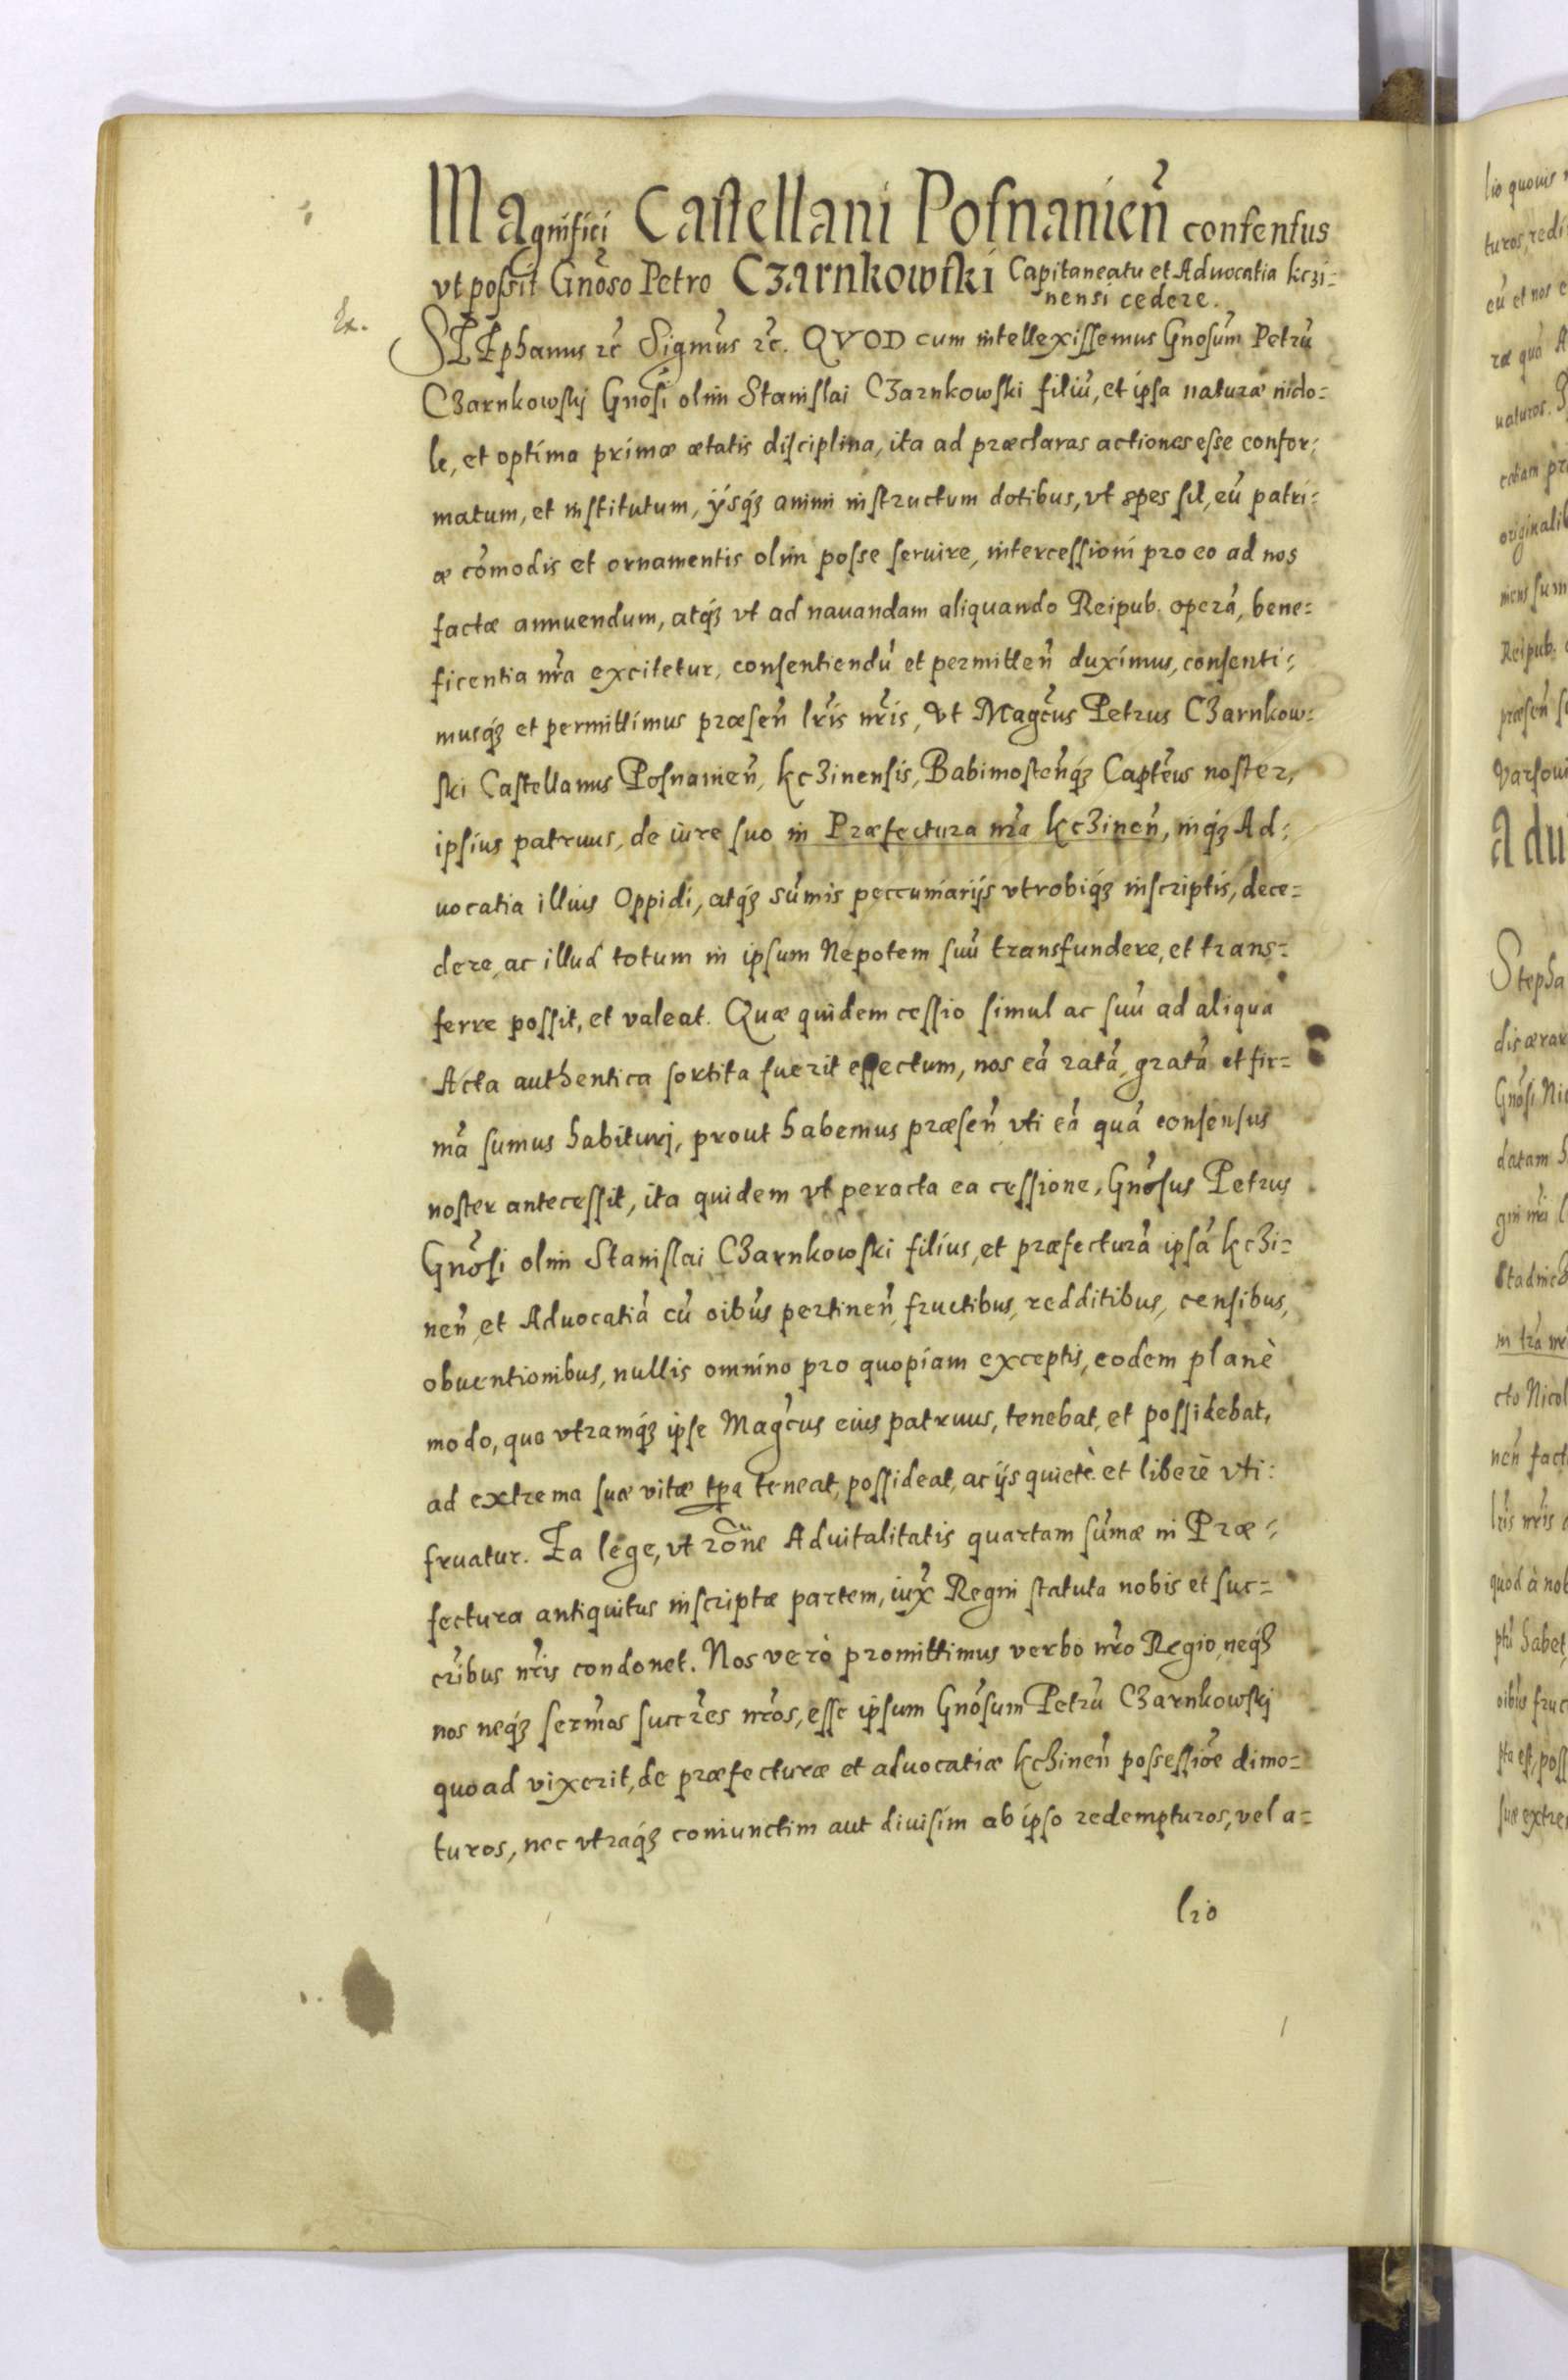 Magnifici Castellani Posnanień consensus
vt possit Gnõso Petro Czarnkowski Capitaneatu et Aduocatia kczi=
nensi cedere.
Ex.
STEphanus etc̃ Sigmũs etc̃. QVOD cum intellexissemus Gnõsum Petrũ
Czarnkowskj Gnõsi olim Stanislai Czarnkowski filiũ, et ipsa naturæ indo=
le, et optima primæ ætatis disciplina, ita ad præclaras actiones esse confor=
matum, et institutum, ijsq́ꝫ animi instructum dotibus, vt spes sit, eũ patri=
æ cõmodis et ornamentis olim posse seruire, intercessioni pro eo ad nos
factæ annuendum, atq́ꝫ vt ad nauandam aliquando Reipub. operã, bene=
ficentia nr̃a excitetur, consentiendũ et permitteñ duximus, consenti=
musq́ꝫ et permittimus præseñ lr̃is nr̃is, vt Magcũs Petrus Czarnkow=
ski Castellanus Posnanień, kczinensis, Babimosteñq́ꝫ Captẽus noster,
ipsius patruus, de iure suo in Præfectura nr̃a kczineñ, inq́ꝫ Ad=
uocatia illius Oppidi, atq́ꝫ sũmis peccuniarijs vtrobiq́ꝫ inscriptis, dece=
dere, ac illud totum in ipsum Nepotem suũ transfundere, et trans=
ferre possit, et valeat. Quæ quidem cessio simul ac suũ ad aliqua
Acta authentica sortita fuerit effectum, nos eã ratã, gratã et fir=
mã sumus habiturj, prout habemus præseñ vti eã quã consensus
noster antecessit, ita quidem vt peracta ea cessione, Gnõsus Petrus
Gnõsi olim Stanislai Czarnkowski filius, et præfecturã ipsã kczi=
neñ, et Aduocatiã cũ oibũs pertineñ, fructibus, redditibus, censibus,
obuentionibus, nullis omnino pro quopiam exceptis, eodem planè
modo, quo vtramq́ꝫ ipse Magcũs eius patruus, tenebat, et possidebat,
ad extrema suæ vitæ tpã teneat, possideat, ac ijs quietè et liberè vti=
fruatur. Ea lege, vt rõne Aduitalitatis quartam sũmæ in Præ=
fectura antiquitus inscriptæ partem, iux̃ Regni statuta nobis et suc=
cr̃ibus nr̃is condonet. Nos verò promittimus verbo nr̃o Regio, neq́ꝫ
nos neq́ꝫ serm̃os succr̃es nr̃os, esse ipsum Gnõsum Petrũ Czarnkowskj
quoad vixerit, de præfecturæ et aduocatiæ kczineñ possessiõe dimo=
turos, nec vtraq́ꝫ coniunctim aut diuisim ab ipso redempturos, vel a=
lio